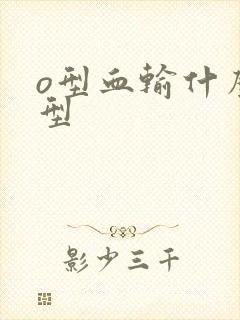 o型血输什
型
影少三千